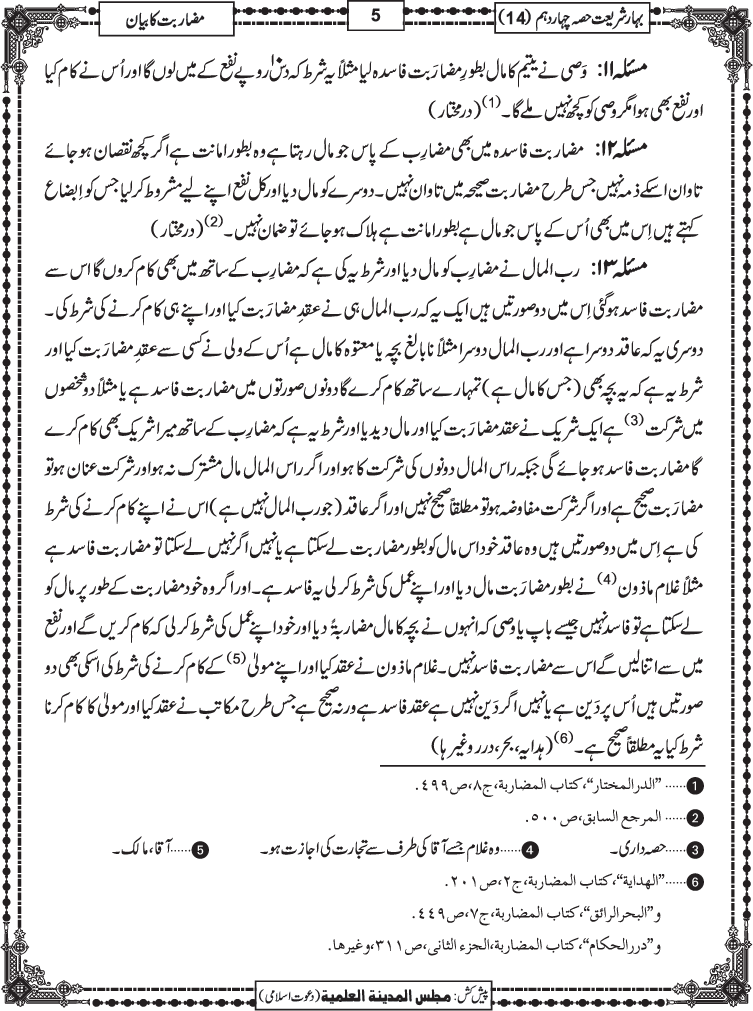 بہارِ شریعت حصہ چہاردہم (14)
5
مضاربت کا بیان
مسئلہ ۱۱: وَصی نے یتیم کا مال بطورِ مضارَبت فاسدہ لیا مثلاً یہ شرط کہ دس۱۰ روپے نفع کے میں لوں گا اور اُس نے کام کیا
اور نفع بھی ہوا مگر وصی کو کچھ نہیں ملے گا۔(1) (درمختار)
مسئلہ ۱۲: مضاربت فاسدہ میں بھی مضارِب کے پاس جو مال رہتا ہے وہ بطور امانت ہے اگر کچھ نقصان ہو جائے
تاوان اسکے ذمہ نہیں جس طرح مضاربت صحیحہ میں تاوان نہیں۔ دوسرے کو مال دیا اور کل نفع اپنے لیے مشروط کر لیا جس کو اِبضاع
کہتے ہیں اِس میں بھی اُس کے پاس جو مال ہے بطور امانت ہے ہلاک ہو جائے تو ضمان نہیں۔(2) (درمختار)
مسئلہ ۱۳: رب المال نے مضارِب کو مال دیا اور شرط یہ کی ہے کہ مضارِب کے ساتھ میں بھی کام کروں گا اس سے
مضاربت فاسد ہوگئی اِس میں دو صورتیں ہیں ایک یہ کہ رب المال ہی نے عقدِ مضارَبت کیا اور اپنے ہی کام کرنے کی شرط کی۔
دوسری یہ کہ عاقد دوسرا ہے اور رب المال دوسرا مثلاً نابالغ بچہ یا معتوہ کا مال ہے اُس کے ولی نے کسی سے عقدِ مضارَبت کیا اور
شرط یہ ہے کہ یہ بچہ بھی (جس کا مال ہے) تمہارے ساتھ کام کرے گا دونوں صورتوں میں مضاربت فاسد ہے یا مثلاً دو شخصوں
میں شرکت(3) ہے ایک شریک نے عقد مضارَبت کیا اور مال دیدیا اور شرط یہ ہے کہ مضارِب کے ساتھ میرا شریک بھی کام کرے
گا مضاربت فاسد ہو جائے گی جبکہ راس المال دونوں کی شرکت کا ہو اور اگر راس المال مال مشترک نہ ہو اور شرکت عنان ہو تو
مضارَبت صحیح ہے اور اگر شرکت مفاوضہ ہو تو مطلقاً صحیح نہیں اور اگر عاقد (جو رب المال نہیں ہے) اس نے اپنے کام کرنے کی شرط
کی ہے اِس میں دو صورتیں ہیں وہ عاقد خود اس مال کو بطور مضاربت لے سکتا ہے یا نہیں اگر نہیں لے سکتا تو مضاربت فاسد ہے
مثلاً غلام ماذون(4) نے بطور مضارَبت مال دیا اور اپنے عمل کی شرط کر لی یہ فاسد ہے۔ اور اگر وہ خود مضاربت کے طور پر مال کو
لے سکتا ہے تو فاسد نہیں جیسے باپ یا وصی کہ انہوں نے بچہ کا مال مضاربۃً دیا اور خود اپنے عمل کی شرط کر لی کہ کام کریں گے اور نفع
میں سے اتنا لیں گے اس سے مضاربت فاسد نہیں۔ غلام ماذون نے عقد کیا اور اپنے مولیٰ(5) کے کام کرنے کی شرط کی اسکی بھی دو
صورتیں ہیں اُس پر دَین ہے یا نہیں اگر دَین نہیں ہے عقد فاسد ہے ورنہ صحیح ہے جس طرح مکاتب نے عقد کیا اور مولیٰ کا کام کرنا
شرط کیا یہ مطلقاً صحیح ہے۔(6) (ہدایہ، بحر، درر وغیرہا)
1 ...... "الدرالمختار"، کتاب المضاربة، ج۸، ص۴۹۹.
2 ...... المرجع السابق، ص۵۰۰.
3 ...... حصہ داری۔ 4 ...... وہ غلام جسے آقا کی طرف سے تجارت کی اجازت ہو۔ 5 ...... آقا، مالک۔
6 ...... "الهداية"، کتاب المضاربة، ج۲، ص۲۰۱.
و"البحرالرائق"، کتاب المضاربة، ج۷، ص۴۴۹.
و"دررالحکام"، کتاب المضاربة، الجزء الثانی، ص۳۱۱، وغیرها.
پیش کش: مجلس المدینة العلمیة (دعوتِ اسلامی)